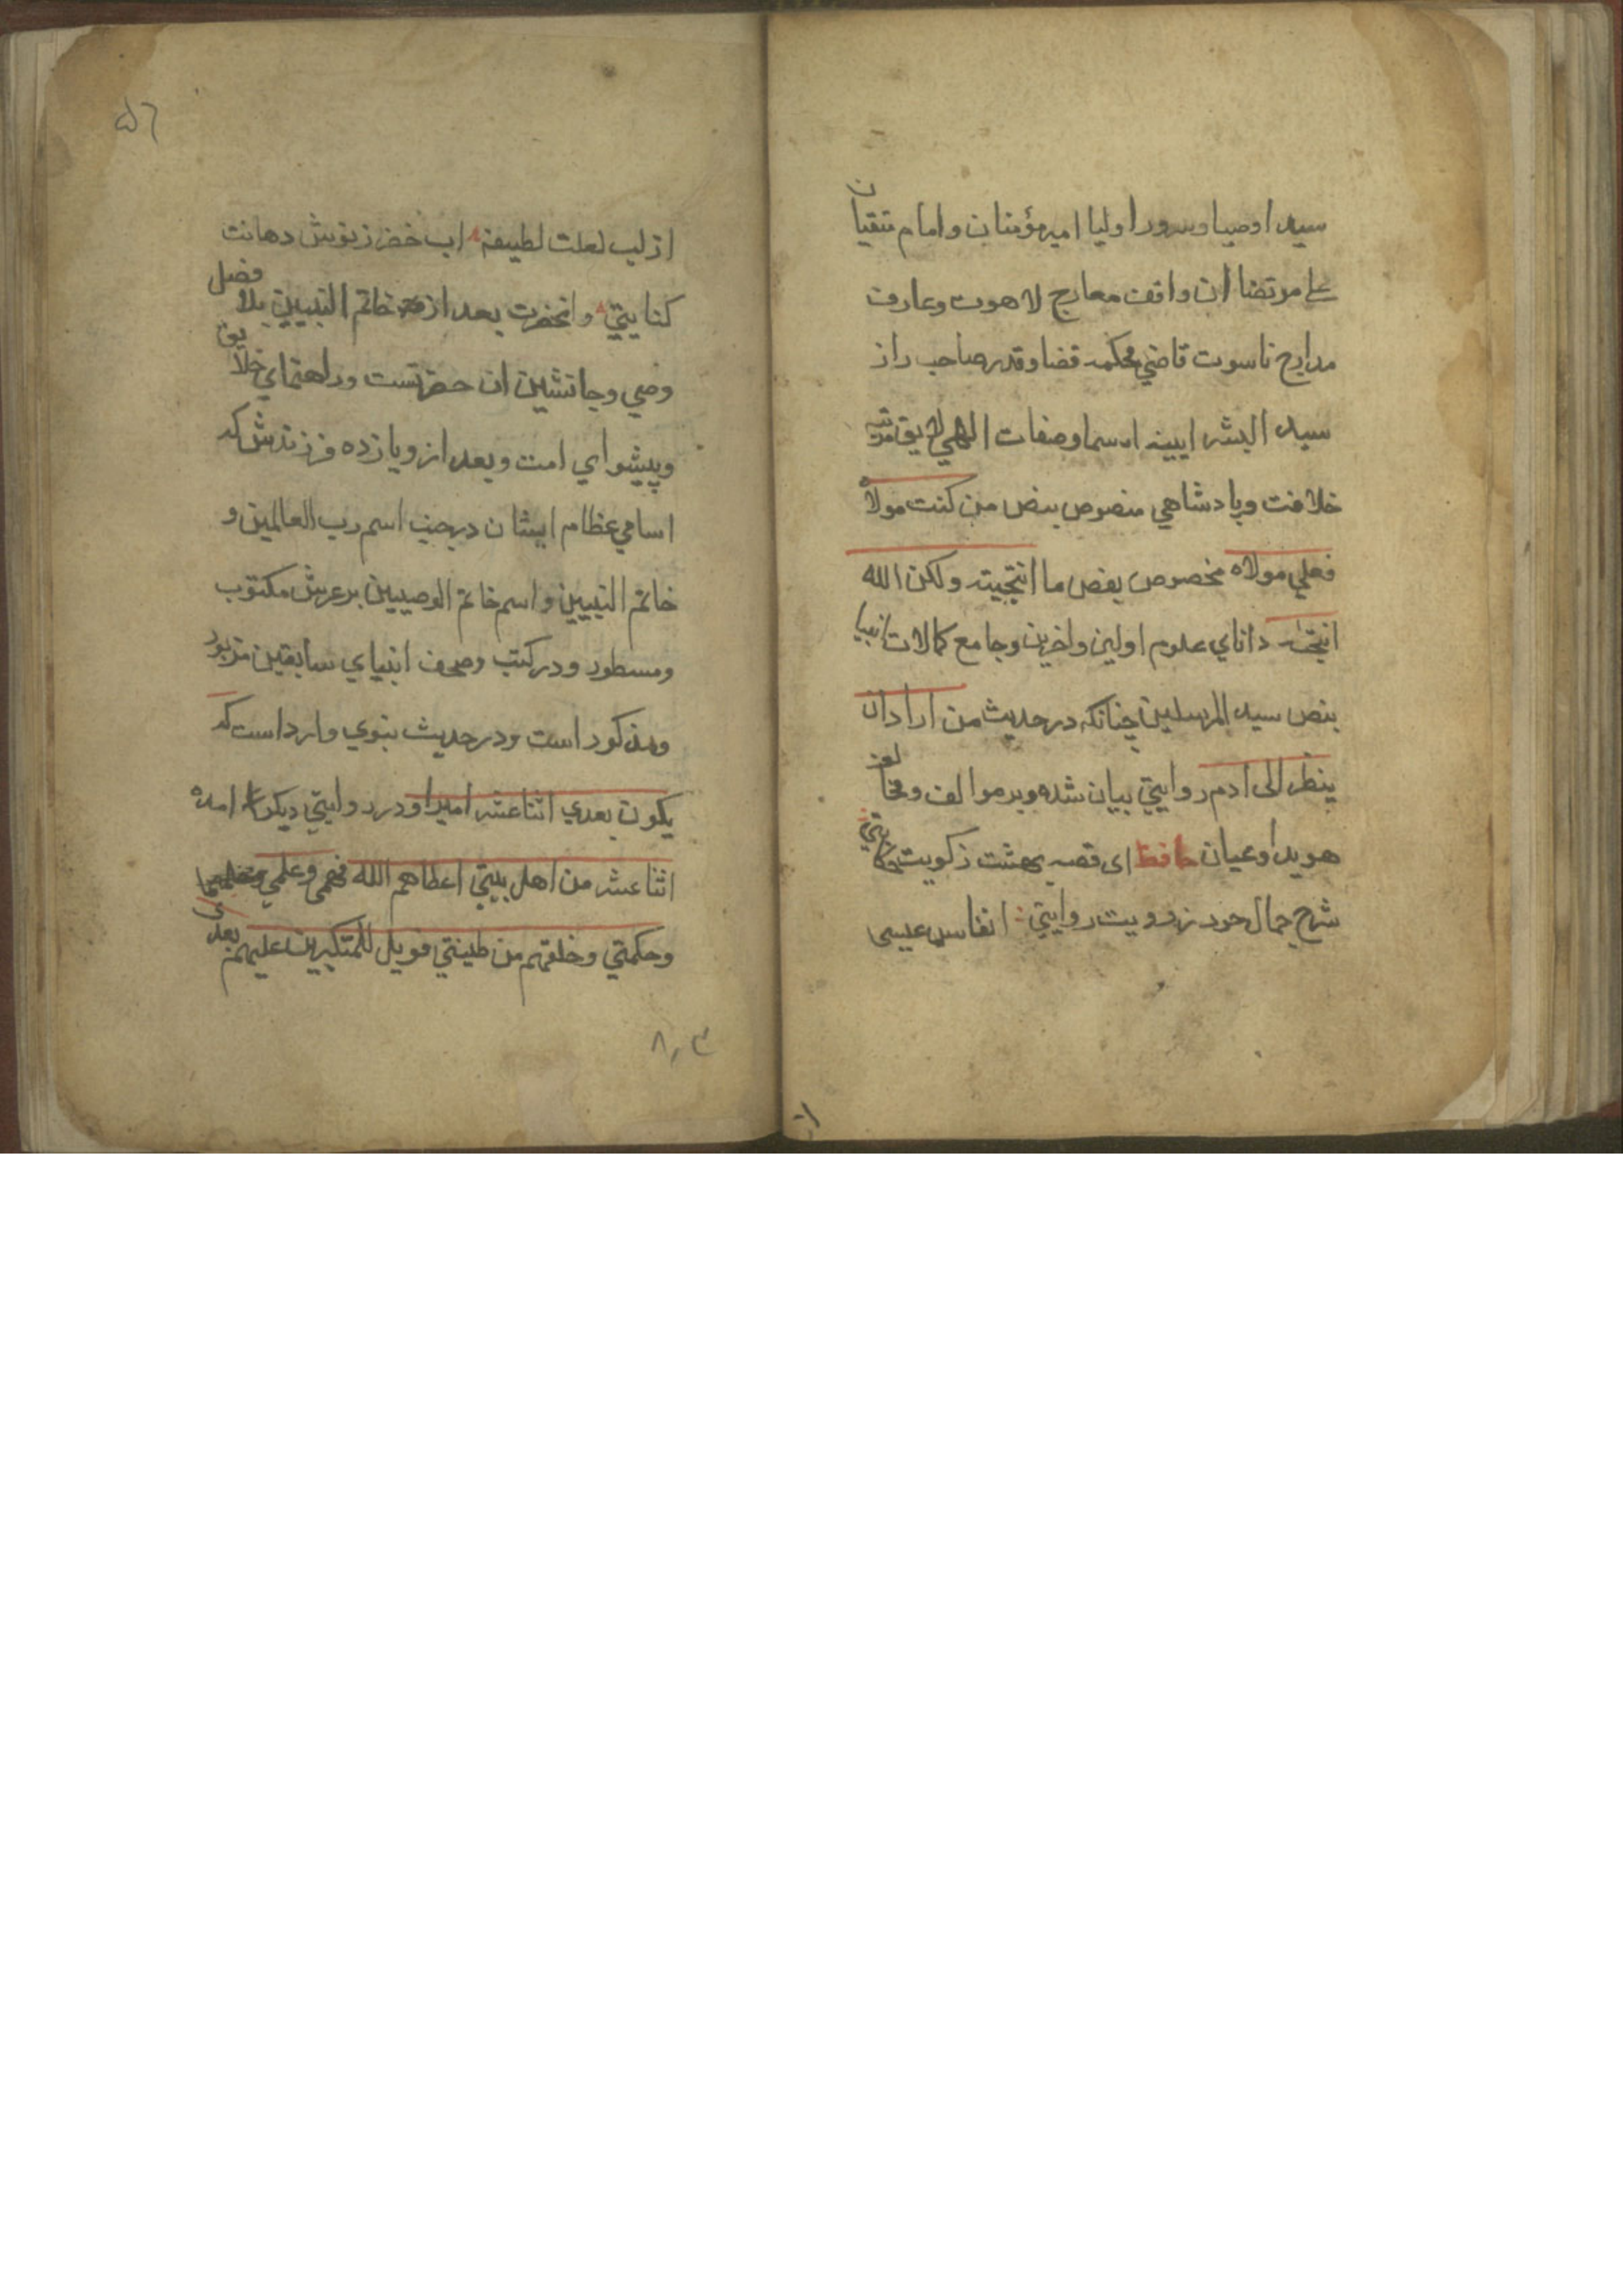 سید اوصیا وسرور اولیا امیر مؤمنان وامام متقیان
علی مرتضا ان واقف معارج لاهوت وعارف
مدارج ناسوت قاضی محکمه قضا وقدر صاحب راز
سید البشر ایینه اسما وصفات الهی لایق مرتبه
خلافت وپادشاهی منصوص بنص من کنت مولاه
فعلی مولاه مخصوص بفص ما انتجیته ولکن الله
انتجاه دانای علوم اولین واخرین وجامع کمالات انبیا
بنص سید المرسلین چنانکه در حدیث من اراد ان
ینظر الی ادم روایتی بیان شده وبر موالف ومخالف
هویدا وعیان حافظ ای قصه بهشت ز کویت حکایتی
شرح جمال حور ز رویت روایتی انفاس عیسی
۵٦
از لب لعلت لطیفه اب خضر ز نوش دهانت
کنایتی وانحضرت بعد از خاتم النبیین بلا فضل
وصی وجانشین ان حضرتست وراهنمای خلایق
وپیشوای امت وبعد از ویازده فرزندش که
اسامی عظام ایشان در جنب اسم رب العالمین و
خاتم النبیین واسم خاتم الوصیین بر عرش مکتوب
ومسطور ودر کتب وصحف انبیای سابقین مزبور
ومذکور است ودر حدیث نبوی وارد است که
یکون بعدی اثنا عشر امیرا ودر روایتی دیکر امده
اثنا عشر من اهل بیتی اعطاهم الله فهمی وعلمی
وحکمتی وخلقهم من طینتی فویل للمتکبرین علیهم بعدی